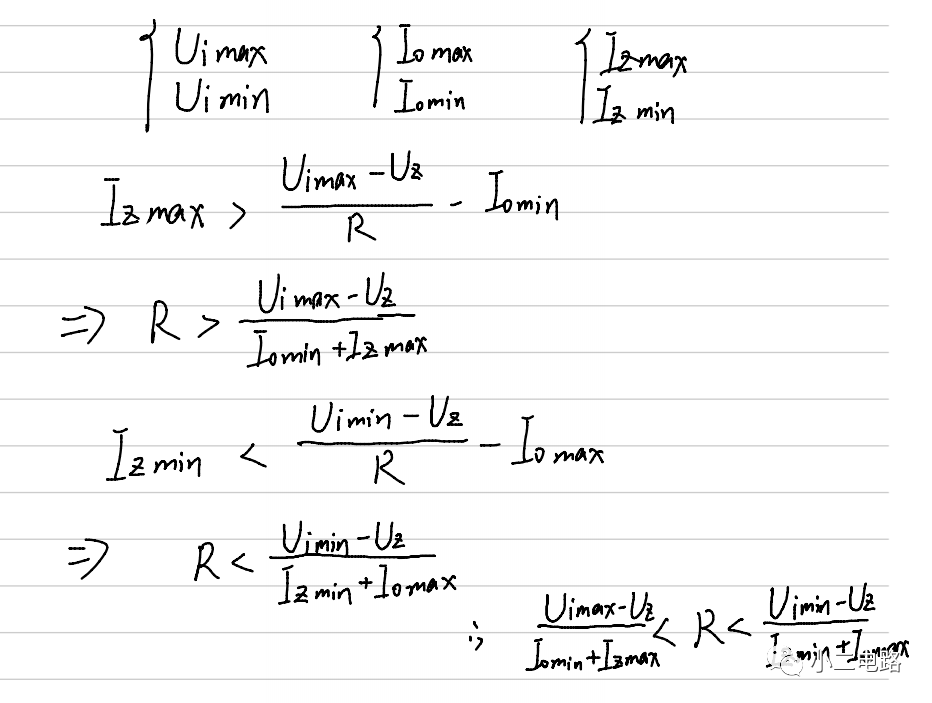 { Uimax { Iomax { Izmax
Uimin Iomin Izmin
Izmax > (Uimax - Uz)/R - Iomin
⇒ R > (Uimax - Uz)/(Iomin + Izmax)
Izmin < (Uimin - Uz)/R - Iomax
⇒ R < (Uimin - Uz)/(Izmin + Iomax)
∴ (Uimax - Uz)/(Iomin + Izmax) < R < (Uimin - Uz)/(Izmin + Iomax)
小二电路